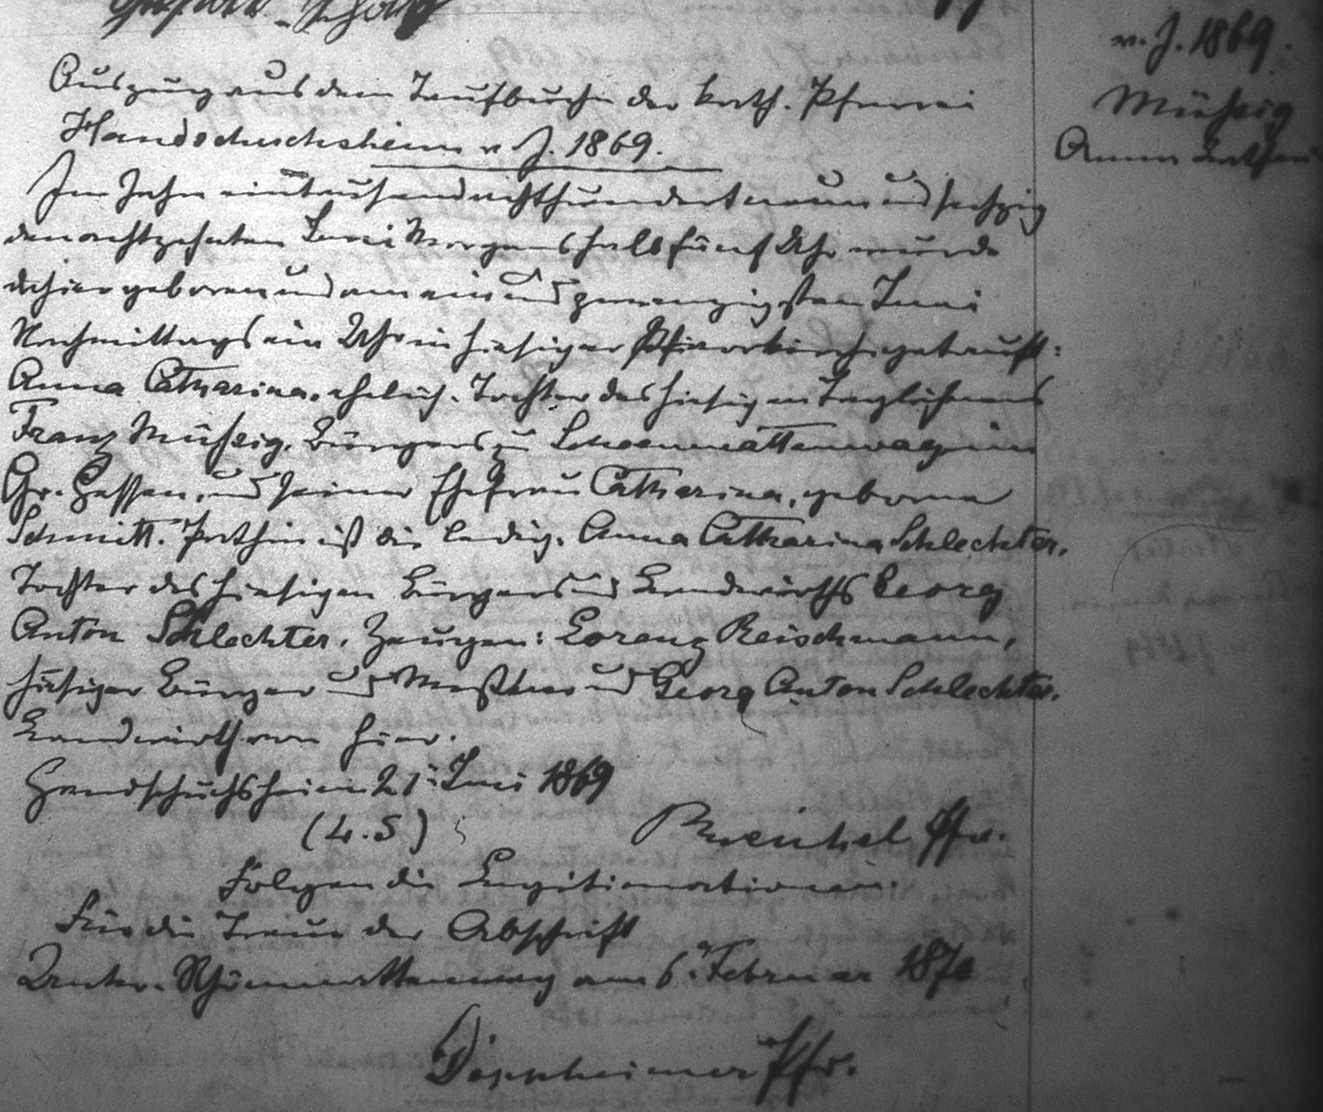 v. J. 1869.
Mühsig
Anna Cathari
Auszug aus dem Taufbuche der kath. Pfarrei
Handschuchsheim v. J. 1869.
Im Jahr eintausendachthundertneunundsechzig
den achtzehnten Juni Morgens halb fünf Uhr wurde
dahier geboren und am einundzwanzigsten Juni
Nachmittags ein Uhr in hiesiger Pfarrkirche getauft:
Anna Catharina, ehelich. Tochter des hiesigen Taglöhners
Franz Mühsig, Bürgers zu Schoenmattenwag im
Gr. Hessen, und seiner Ehefrau Catharina, geborne
Schmitt. Pathin ist die ledig. Anna Catharina Schlechter,
Tochter des hiesigen Bürgers und Landwirths Georg
Anton Schlechter. Zeugen: Lorenz Reischmann,
hiesiger Bürger und Meßner und Georg Anton Schlechter,
Landwirth von hier.
Handschuchsheim 21. Juni 1869
(L. S) Pfr.
Folgen die Legitimationen.
Für die Treue der Abschrift
Unter-Schönmattenwag am 6. Februar 1870
Pfr.